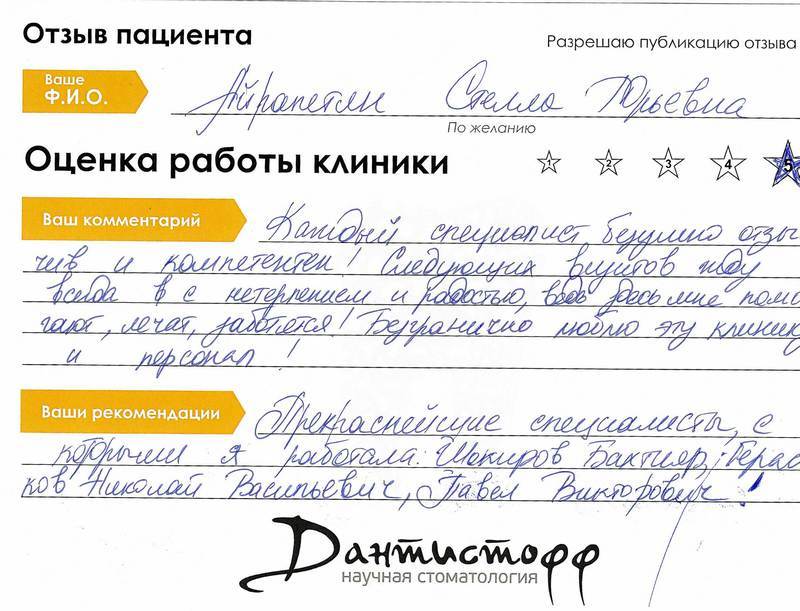 Отзыв пациента
Разрешаю публикацию отзыва
Ваше
Ф.И.О.
Айрапетян Стелла Юрьевна
По желанию
Оценка работы клиники
1 2 3 4 5
Ваш комментарий
Каждый специалист безумно отзы
чив и компетентен! Следующих визитов жду
всегда в с нетерпением и радостью, ведь здесь мне помо
гают, лечат, заботятся! Безгранично люблю эту клинику
и персонал!
Ваши рекомендации
Прекраснейшие специалисты, с
которыми я работала: Шокиров Бахтияр, Герас
ков Николай Васильевич, Павел Викторович!
Дантистофф
научная стоматология